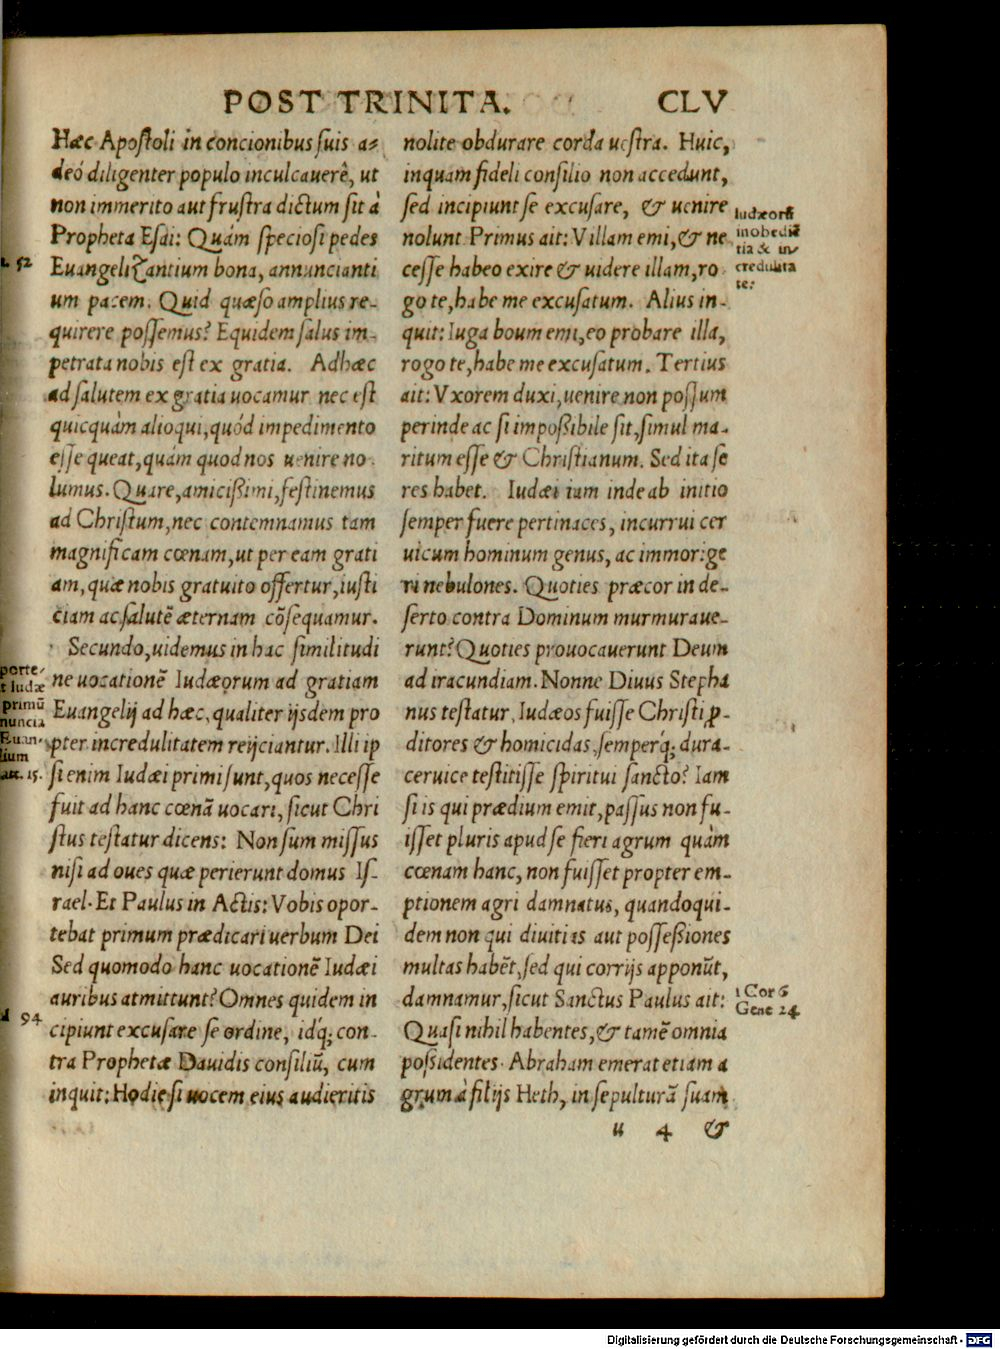 POST TRINITA. CLV
Hæc Apostoli in concionibus suis a-
deó diligenter populo inculcauerê, ut
non immerito aut frustra dictum sit à
Propheta Esai: Quám speciosi pedes
Euangelizantium bona, annuncianti
um pacem. Quid quæso amplius re-
quirere possemus? Equidem salus im-
petrata nobis est ex gratia. Ad hæc
ad salutem ex gratia uocamur nec est
quicquàm alioqui, quód impedimento
esse queat, quám quod nos uenire no
lumus. Quare, amicißimi, festinemus
ad Christum, nec contemnamus tam
magnificam cœnam, ut per eam grati
am, quæ nobis gratuito offertur, iusti
ciam ac salutẽ æternam cõsequamur.
Secundo, uidemus in hac similitudi
ne uocationẽ Iudæorum ad gratiam
Euangelij ad hæc, qualiter ijsdem pro
pter incredulitatem reijciantur. Illi ip
si enim Iudæi primi sunt, quos necesse
fuit ad hanc cœnã uocari, sicut Chri
stus testatur dicens: Non sum missus
nisi ad oues quæ perierunt domus Is-
rael. Et Paulus in Actis: Vobis opor-
tebat primum prædicari uerbum Dei
Sed quomodo hanc uocationẽ Iudæi
auribus atmittunt? Omnes quidem in
cipiunt excusare se ordine, idq́; con-
tra Prophetæ Dauidis consiliũ, cum
inquit: Hodie si uocem eius audieritis
52
porte-
t Iudæ
primũ
nuncia
Euan-
lium
act. 15.
94
nolite obdurare corda uestra. Huic,
inquam fideli consilio non accedunt,
sed incipiunt se excusare, & uenire
nolunt Primus ait: Villam emi, & ne
cesse habeo exire & uidere illam, ro
go te, habe me excusatum. Alius in-
quit: Iuga boum emi, eo probare illa,
rogo te, habe me excusatum. Tertius
ait: Vxorem duxi, uenire non possum
perinde ac si impoßibile sit, simul ma-
ritum esse & Christianum. Sed ita se
res habet. Iudæi iam inde ab initio
semper fuere pertinaces, incurrui cer
uicum hominum genus, ac immorige
ri nebulones. Quoties præcor in de-
serto contra Dominum murmuraue-
runt? Quoties prouocauerunt Deum
ad iracundiam. Nonne Diuus Stepha
nus testatur, Iudæos fuisse Christi ꝓ-
ditores & homicidas, semperq́; dura-
ceruice testitisse spiritui sancto? Iam
si is qui prædium emit, passus non fu-
isset pluris apud se fieri agrum quàm
cœnam hanc, non fuisset propter em-
ptionem agri damnatus, quandoqui-
dem non qui diuitias aut possеßiones
multas habẽt, sed qui corrijs apponũt,
damnamur, sicut Sanctus Paulus ait:
Quasi nihil habentes, & tamẽ omnia
poßidentes. Abraham emerat etiam a
grum à filijs Heth, in sepulturã suam
Iudæorũ
inobediẽ
tia & in-
credulita
te:
1 Cor 6
Gene 24
u 4 &
Digitalisierung gefördert durch die Deutsche Forschungsgemeinschaft - DFG